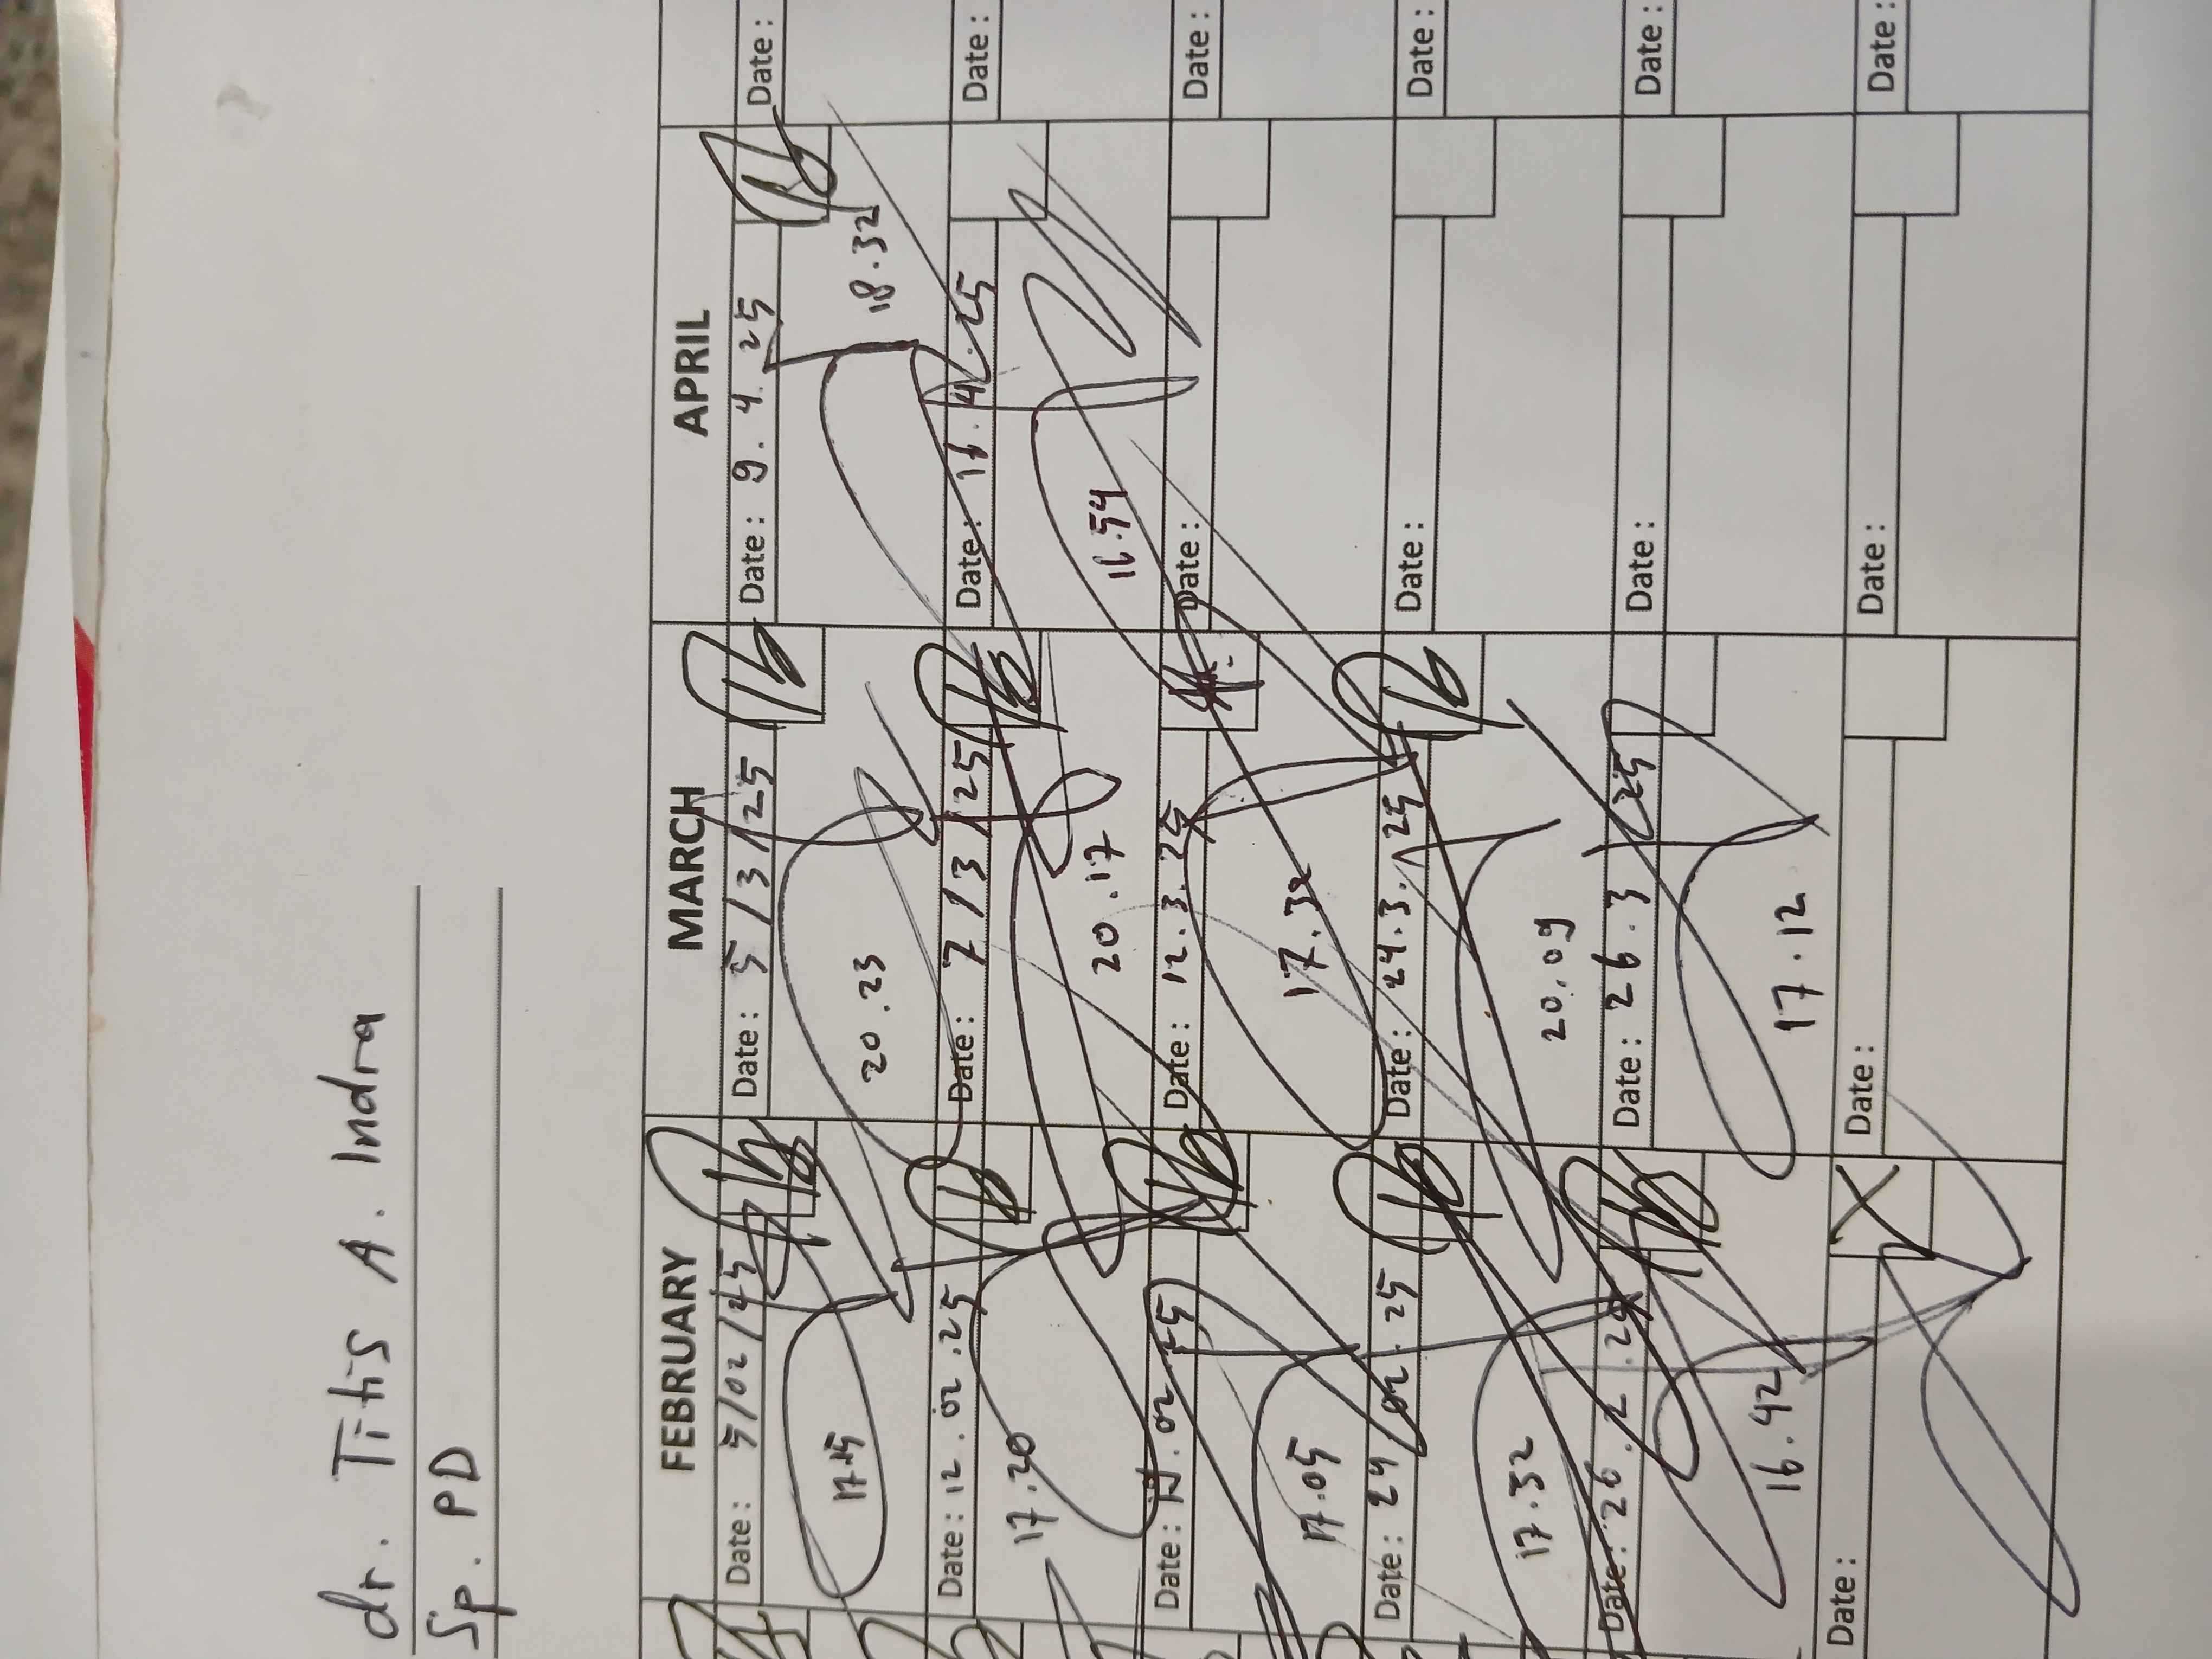 dr. Titis A. Indra
Sp. PD
FEBRUARY MARCH APRIL
Date: 5/02/25 Date: 5/3/25 Date: 9.4.25 Date:
17.15 20.23 18.32
Date: 12.02.25 Date: 7/3/25 Date: 16.4.25 Date:
17.20 20.17 16.54
Date: .02.25 Date: 12.3.25 Date: Date:
17.05 17.32
Date: 24.02.25 Date: 24.3.25 Date: Date:
17.32 20.09
Date: 26.2.25 Date: 26.3.25 Date: Date:
16.42 17.12
Date: Date: Date: Date: